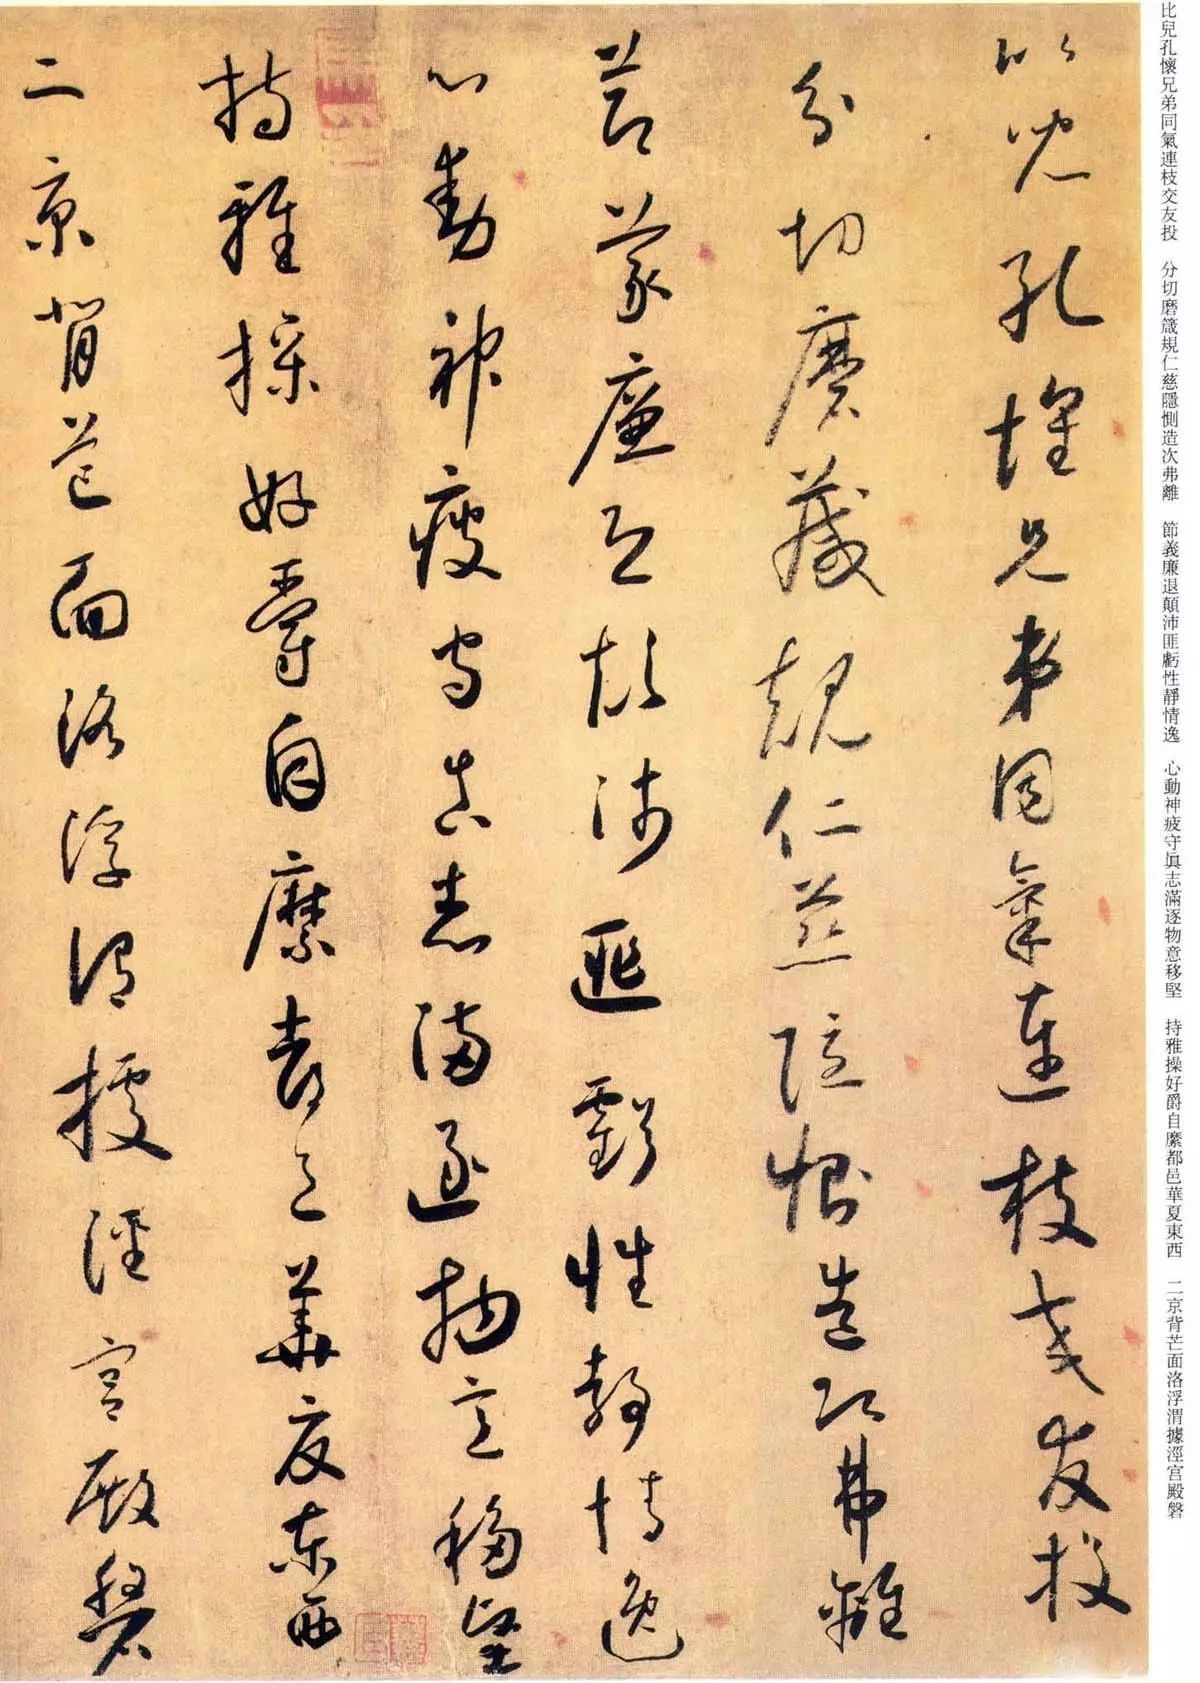 比兒孔懷兄弟同氣連枝交友投　分切磨箴規仁慈隱惻造次弗離　節義廉退顛沛匪虧性靜情逸　心動神疲守眞志滿逐物意移堅　持雅操好爵自縻都邑華夏東西　二京背芒面洛浮渭據涇宮殿磐
比兒孔懷兄弟同氣連枝交友投
分切磨箴規仁慈隱惻造次弗離
節義廉退顛沛匪虧性靜情逸
心動神疲守真志滿逐物意移堅
持雅操好爵自縻都邑華夏東西
二京背芒面洛浮渭據涇宮殿磐